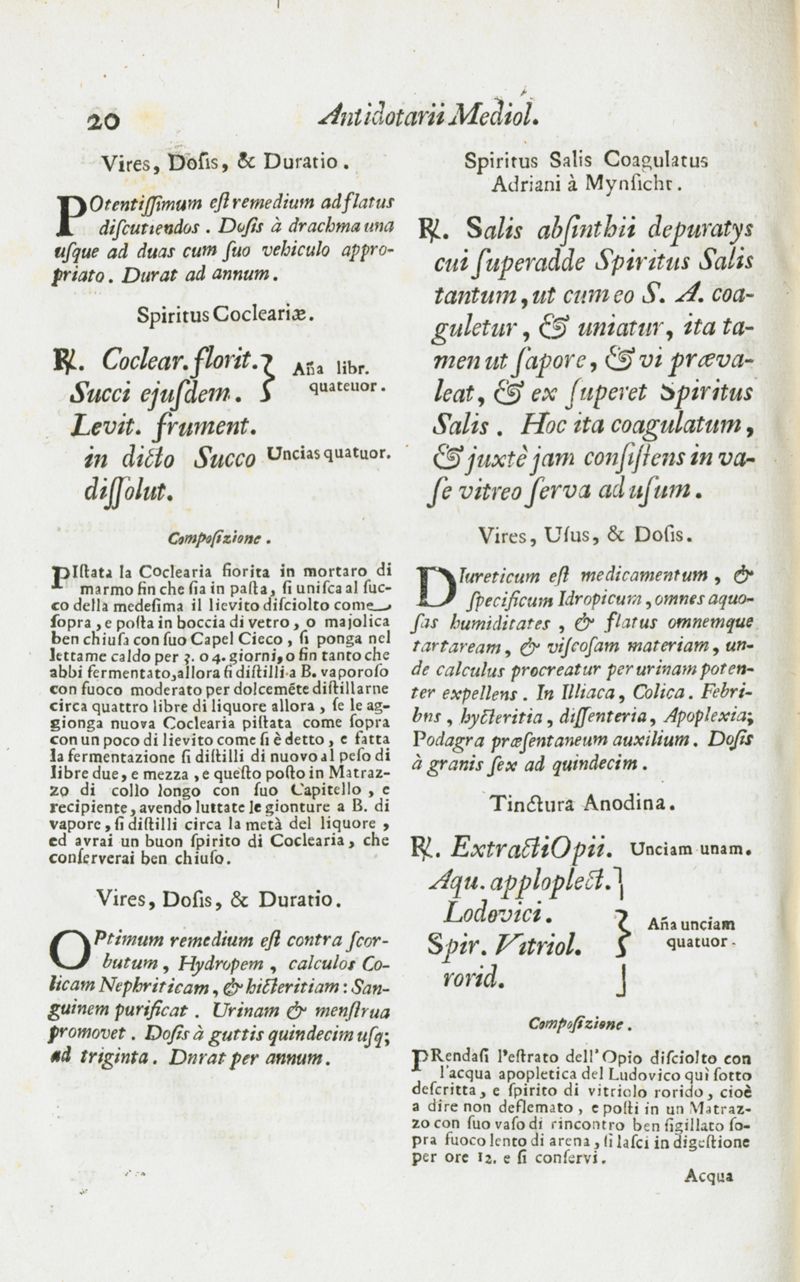 20
Antidotarii Mediol.
Vires, Dosis, & Duratio.
POtentissimum est remedium ad flatus
discutiendos. Dosis à drachma una
usque ad duas cum suo vehiculo appro-
priato. Durat ad annum.
Spiritus Cocleariæ.
℞. Coclear. florit. } Aña libr.
Succi ejusdem. } quatuor.
Levit. frument.
in dicto Succo Uncias quatuor.
dissolut.
Composizione.
PIstata la Coclearia fiorita in mortaro di
marmo fin che sia in pasta, si unisca al suc-
co della medesima il lievito disciolto come
sopra, e posta in boccia di vetro, o majolica
ben chiusa con suo Capel Cieco, si ponga nel
lettame caldo per 3. o 4. giorni, o fin tanto che
abbi fermentato, allora si distilli a B. vaporoso
con fuoco moderato per dolceméte distillarne
circa quattro libre di liquore allora, se le ag-
gionga nuova Coclearia pistata come sopra
con un poco di lievito come si è detto, e fatta
la fermentazione si distilli di nuovo al peso di
libre due, e mezza, e questo posto in Matraz-
zo di collo longo con suo Capitello, e
recipiente, avendo luttate le gionture a B. di
vapore, si distilli circa la metà del liquore,
ed avrai un buon spirito di Coclearia, che
conserverai ben chiuso.
Vires, Dosis, & Duratio.
OPtimum remedium est contra scor-
butum, Hydropem, calculos Co-
licam Nephriticam, & hicteritiam: San-
guinem purificat. Urinam & menstrua
promovet. Dosis à guttis quindecim usq;
ad triginta. Dnrat per annum.
Spiritus Salis Coagulatus
Adriani à Mynsicht.
℞. Salis absinthii depuratys
cui superadde Spiritus Salis
tantum, ut cum eo S. A. coa-
guletur, & uniatur, ita ta-
men ut sapore, & vi præva-
leat, & ex superet Spiritus
Salis. Hoc ita coagulatum,
& juxtè jam consistens in va-
se vitreo serva ad usum.
Vires, Usus, & Dosis.
DIureticum est medicamentum, &
specificum Idropicum, omnes aquo-
sas humiditates, & flatus omnemque
tartaream, & viscosam materiam, un-
de calculus procreatur per urinam poten-
ter expellens. In Illiaca, Colica. Febri-
bns, hycteritia, dissenteria, Apoplexia;
Podagra præsentaneum auxilium. Dosis
à granis sex ad quindecim.
Tinctura Anodina.
℞. Extracti Opii. Unciam unam.
Aqu. apploplect.
Lodovici. } Aña unciam
Spir. Vitriol. } quatuor.
rorid.
Composizione.
PRendasi l'estrato dell' Opio disciolto con
l'acqua apopletica del Ludovico quì sotto
descritta, e spirito di vitriolo rorido, cioè
a dire non deflemato, e posti in un Matraz-
zo con suo vaso di rincontro ben sigillato so-
pra fuoco lento di arena, si lasci in digestione
per ore 12. e si conservi.
Acqua